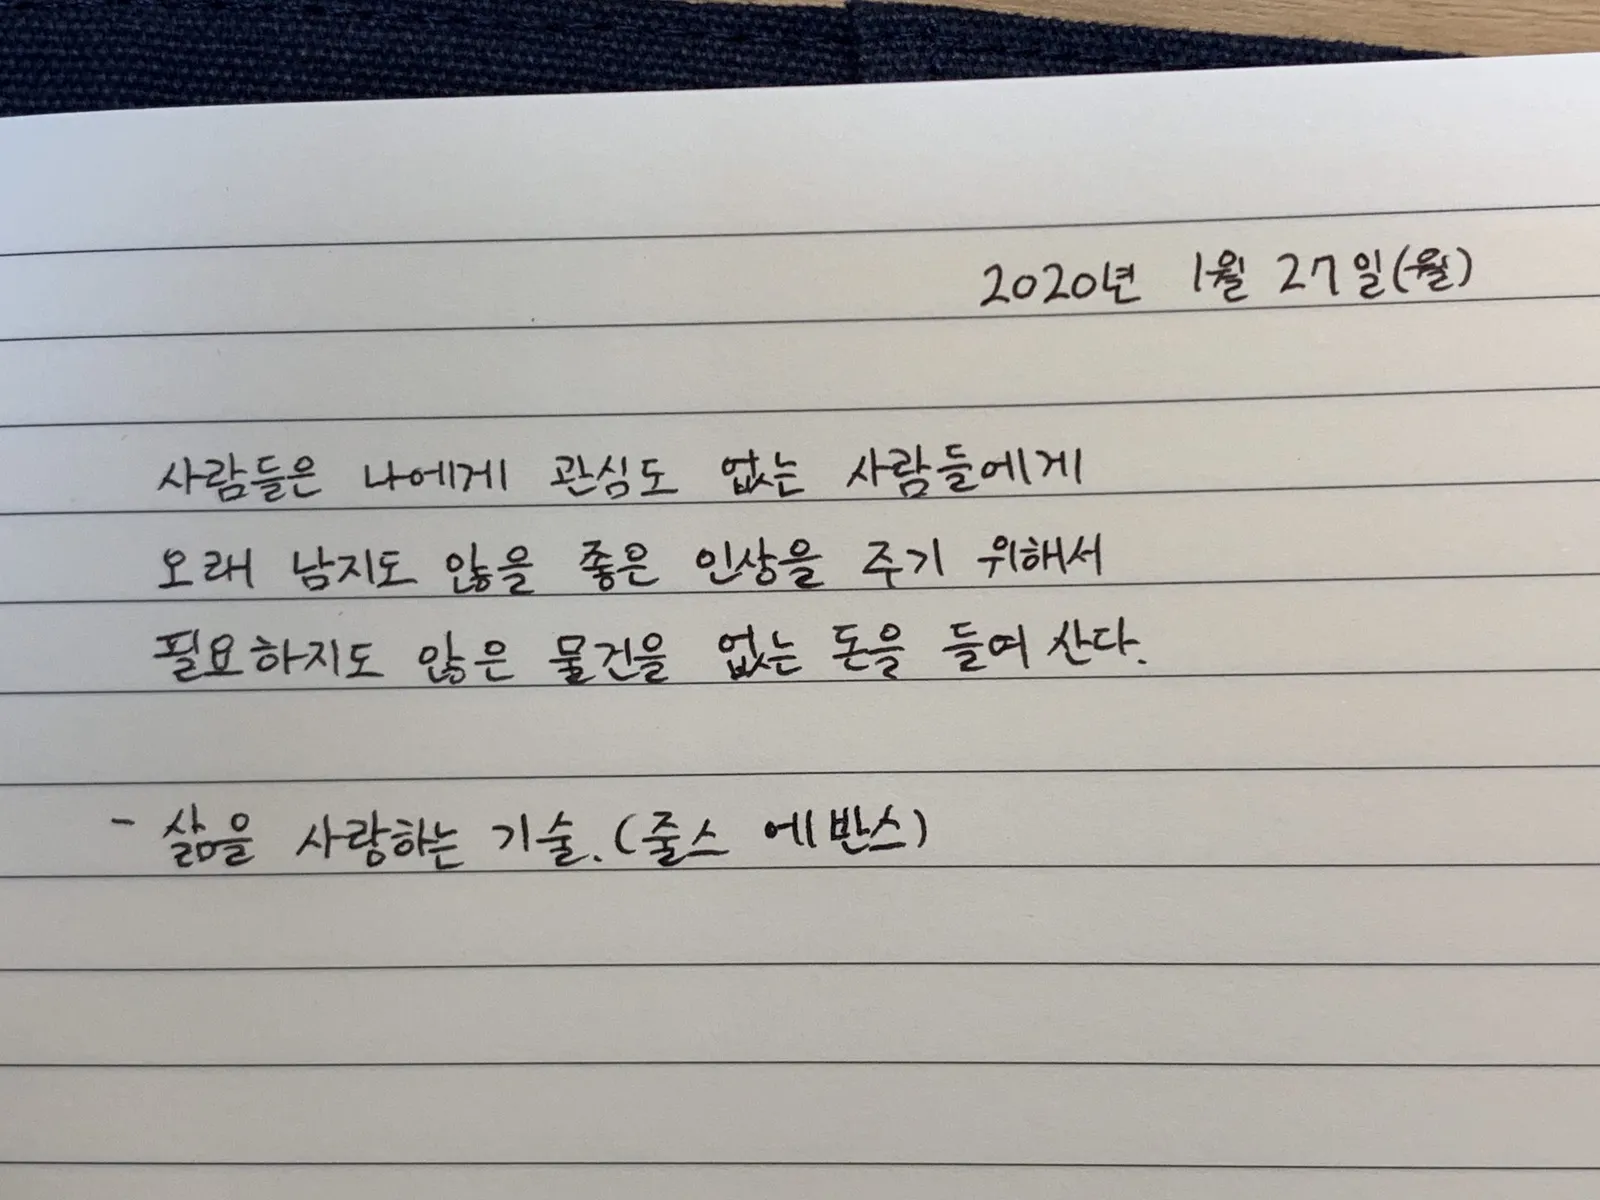 2020년 1월 27일(월)
사람들은 나에게 관심도 없는 사람들에게
오래 남지도 않을 좋은 인상을 주기 위해서
필요하지도 않은 물건을 없는 돈을 들여 산다.
- 삶을 사랑하는 기술.(줄스 에반스)